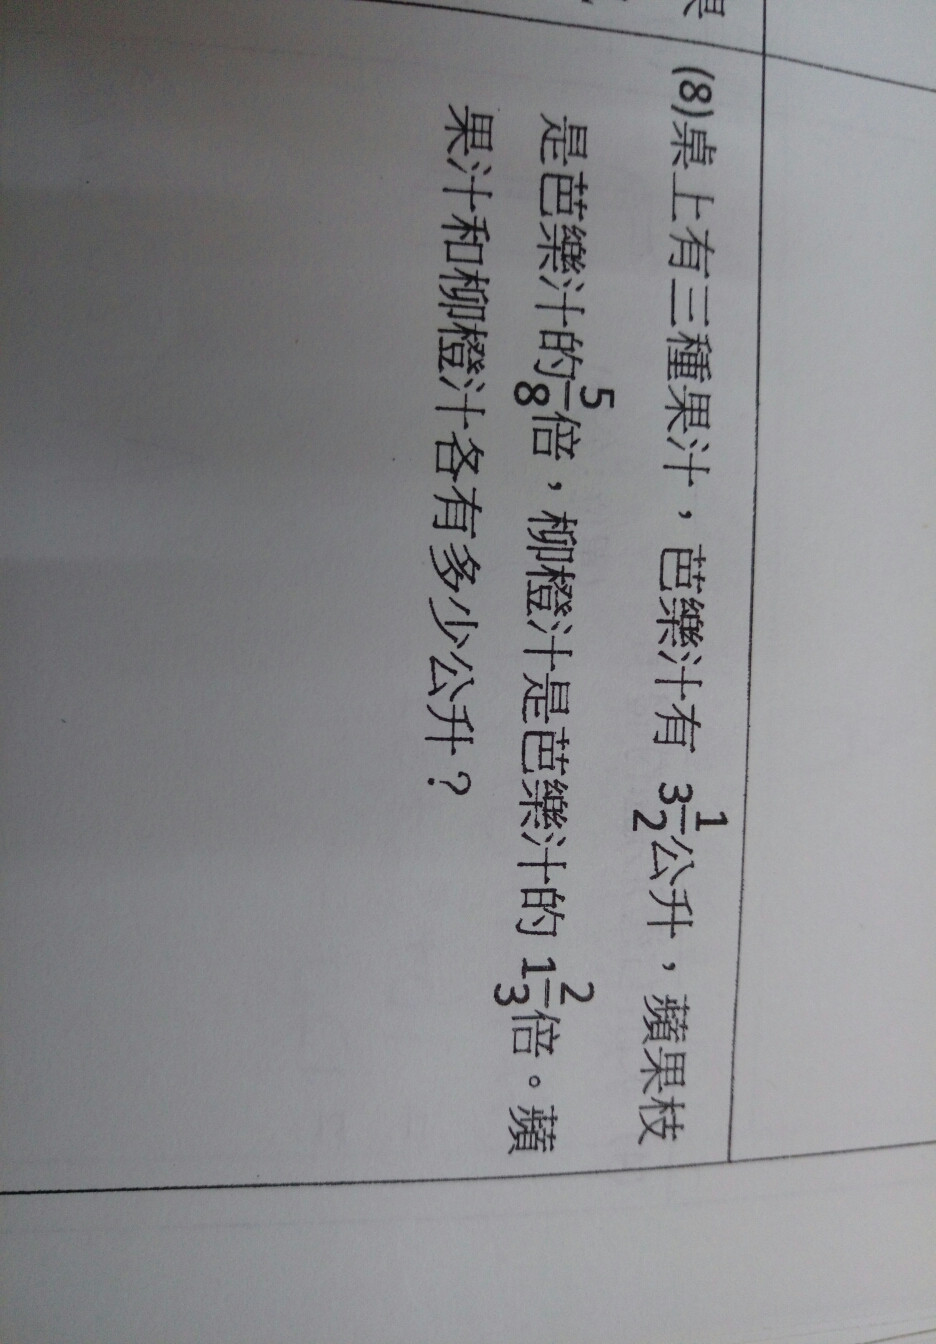 (8)桌上有三種果汁，芭樂汁有 3 1/2公升，蘋果枝
是芭樂汁的5/8倍，柳橙汁是芭樂汁的 1 2/3倍。蘋
果汁和柳橙汁各有多少公升？